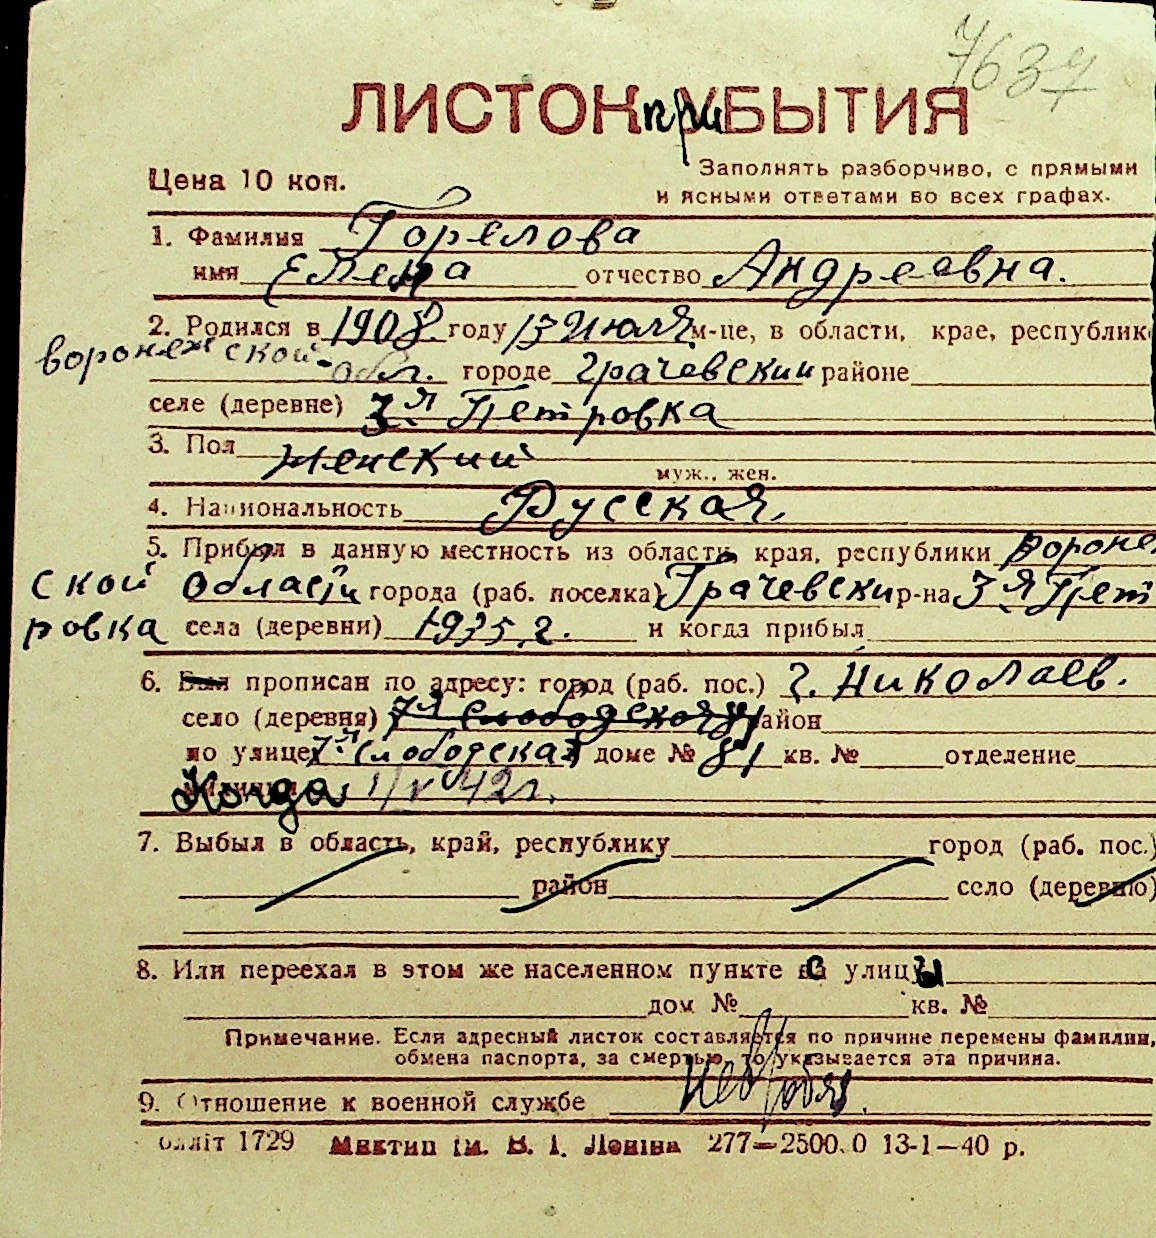 7637
ЛИСТОК прибЫТИЯ
Цена 10 коп.
Заполнять разборчиво, с прямыми
и ясными ответами во всех графах.
1. Фамилия Горелова
имя Елена отчество Андреевна.
2. Родился в 1908. году 13 июля м-це, в области, крае, республик
воронежской обл. городе Грачевский районе
селе (деревне) 3я Петровка
3. Пол женский
муж., жен.
4. Национальность Русская.
5. Прибыл в данную местность из области, края, республики вороне
ской области города (раб. поселка) Грачевский р-на 3я Пет
ровка села (деревни) 1935 г. и когда прибыл
6. Был прописан по адресу: город (раб. пос.) г. Николаев.
село (деревня) 7я Слободская 81 район
по улице 7я Слободская доме № 81 кв. № отделение
Когда 1/V 42 г.
7. Выбыл в область, край, республику город (раб. пос.)
район село (деревню)
8. Или переехал в этом же населенном пункте с улицы
дом № кв. №
Примечание. Если адресный листок составляется по причине перемены фамилии,
обмена паспорта, за смертью, то указывается эта причина.
9. Отношение к военной службе
олліт 1729 Миктип ім. В. І. Леніна 277—2500.0 13-1—40 р.